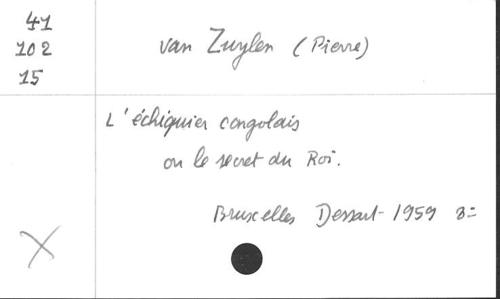 41
102
15
van Zuylen (Pierre)
L'échiquier congolais
ou le secret du Roi.
Bruxelles Dessart - 1959 8=
X